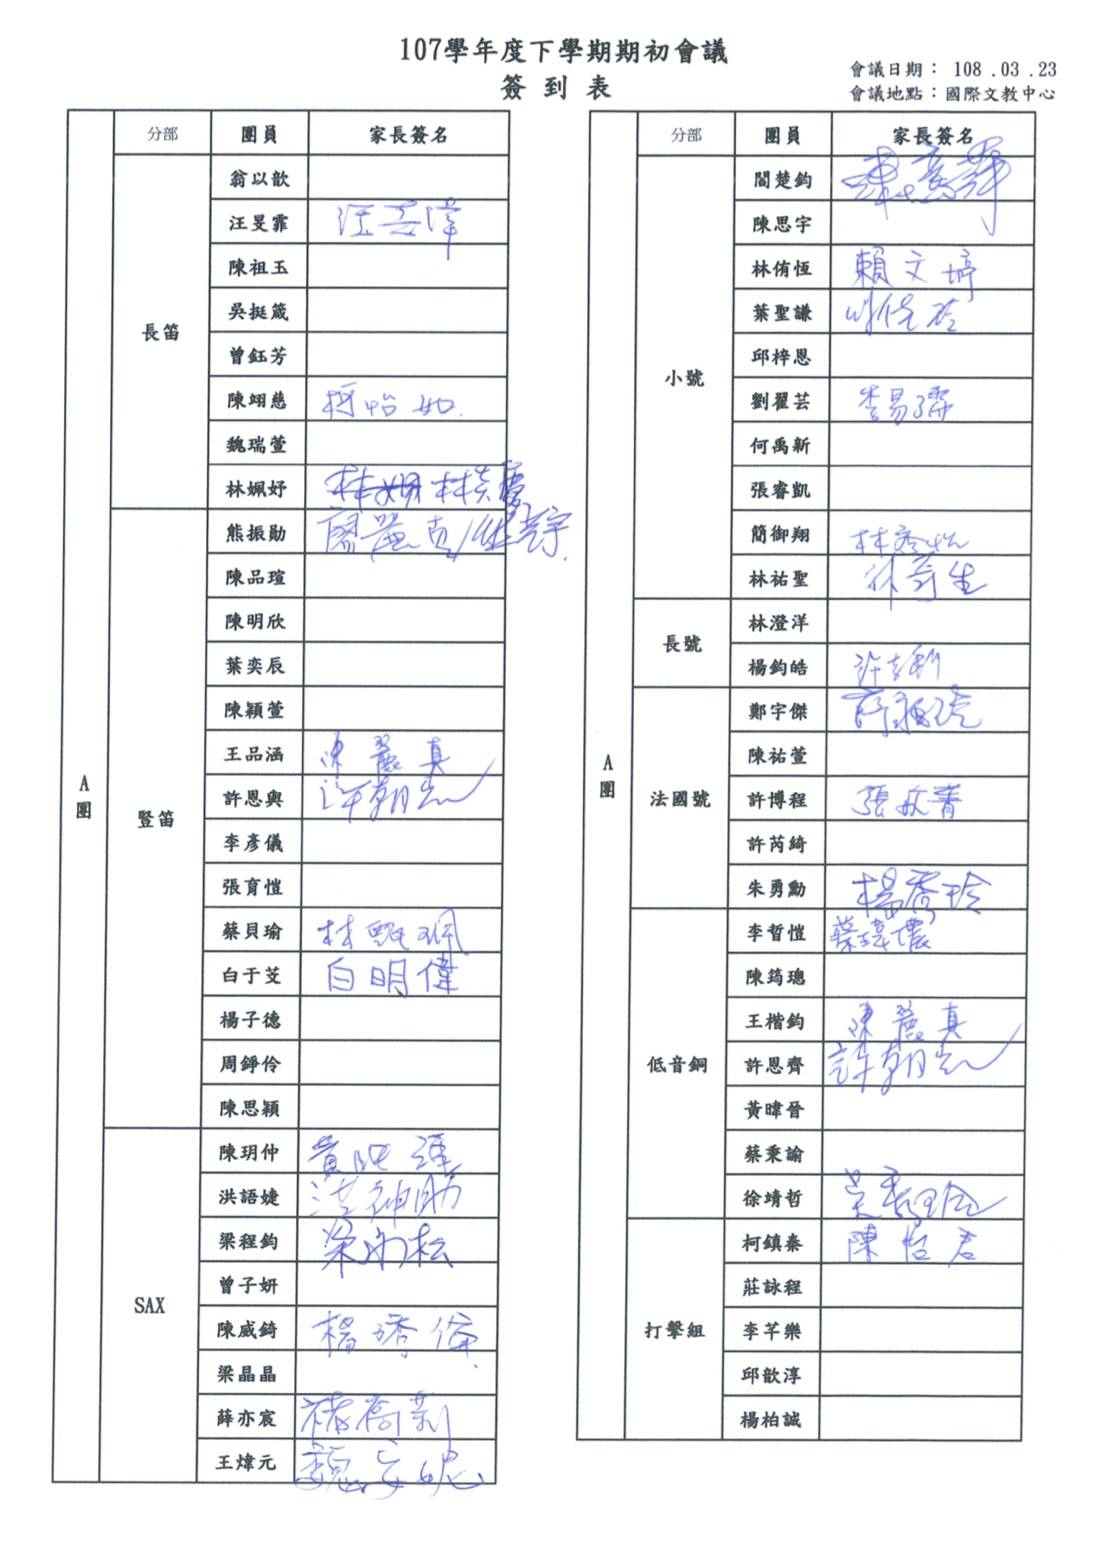 107學年度下學期期初會議
簽到表
會議日期： 108 .03 .23
會議地點：國際文教中心
分部 團員 家長簽名
A團
長笛
翁以歆
汪旻霏
陳祖玉
吳挺箴
曾鈺芳
陳翊慈 柯怡如
魏瑞萱
林姵妤
豎笛
熊振勛
陳品瑄
陳明欣
葉奕辰
陳穎萱
王品涵 陳麗真
許恩與 許朝志
李彥儀
張育愷
蔡貝瑜
白于芠 白明偉
楊子德
周錚伶
陳思穎
SAX
陳玥仲
洪語婕 洪神助
梁程鈞
曾子妍
陳威錡
梁晶晶
薛亦宸
王煒元
分部 團員 家長簽名
A團
小號
閻楚鈞
陳思宇
林侑恆 賴文婷
葉聖謙
邱梓恩
劉瞿芸
何禹新
張睿凱
簡御翔
林祐聖
長號
林澄洋
楊鈞皓
法國號
鄭宇傑
陳祐萱
許博程
許芮綺
朱勇勳 楊秀玲
低音銅
李哲愷
陳筠璁
王楷鈞 陳麗真
許恩齊 許朝志
黃暐晉
蔡秉諭
徐靖哲
打擊組
柯鎮秦 陳怡君
莊詠程
李芊樂
邱歆淳
楊柏誠